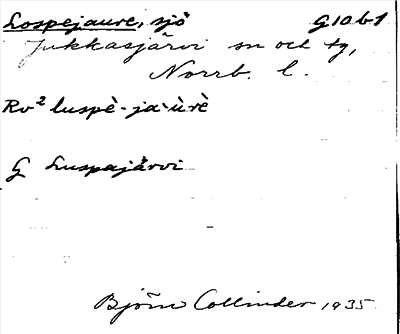 Lospejaure, sjö G10b1
Jukkasjärvi sn och tg,
Norrb. l.
Rv² luspè-ja·ùrè
G Luspajärvi
Björn Collinder 1935